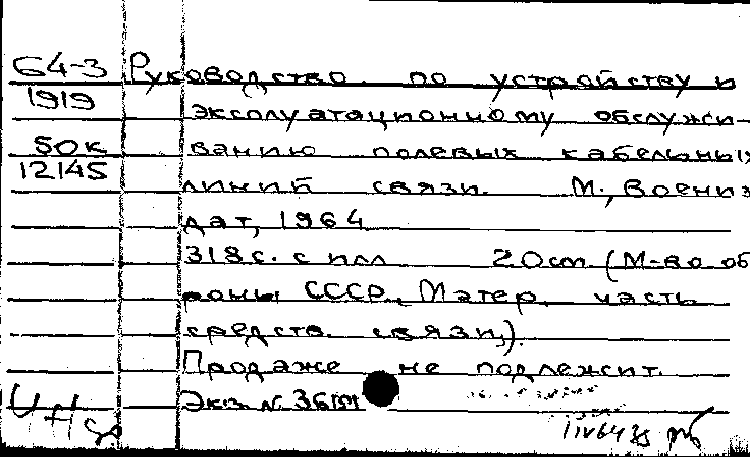 64-3 Руководство по устройству и
1919 эксплуатационному обслужи-
50к ванию полевых кабельных
12145 линий связи. М., Воениз
дат, 1964
318с. с илл 20см (М-во об
роны СССР. Матер. часть
средств связи.).
Продаже не подлежит.
Экз. №